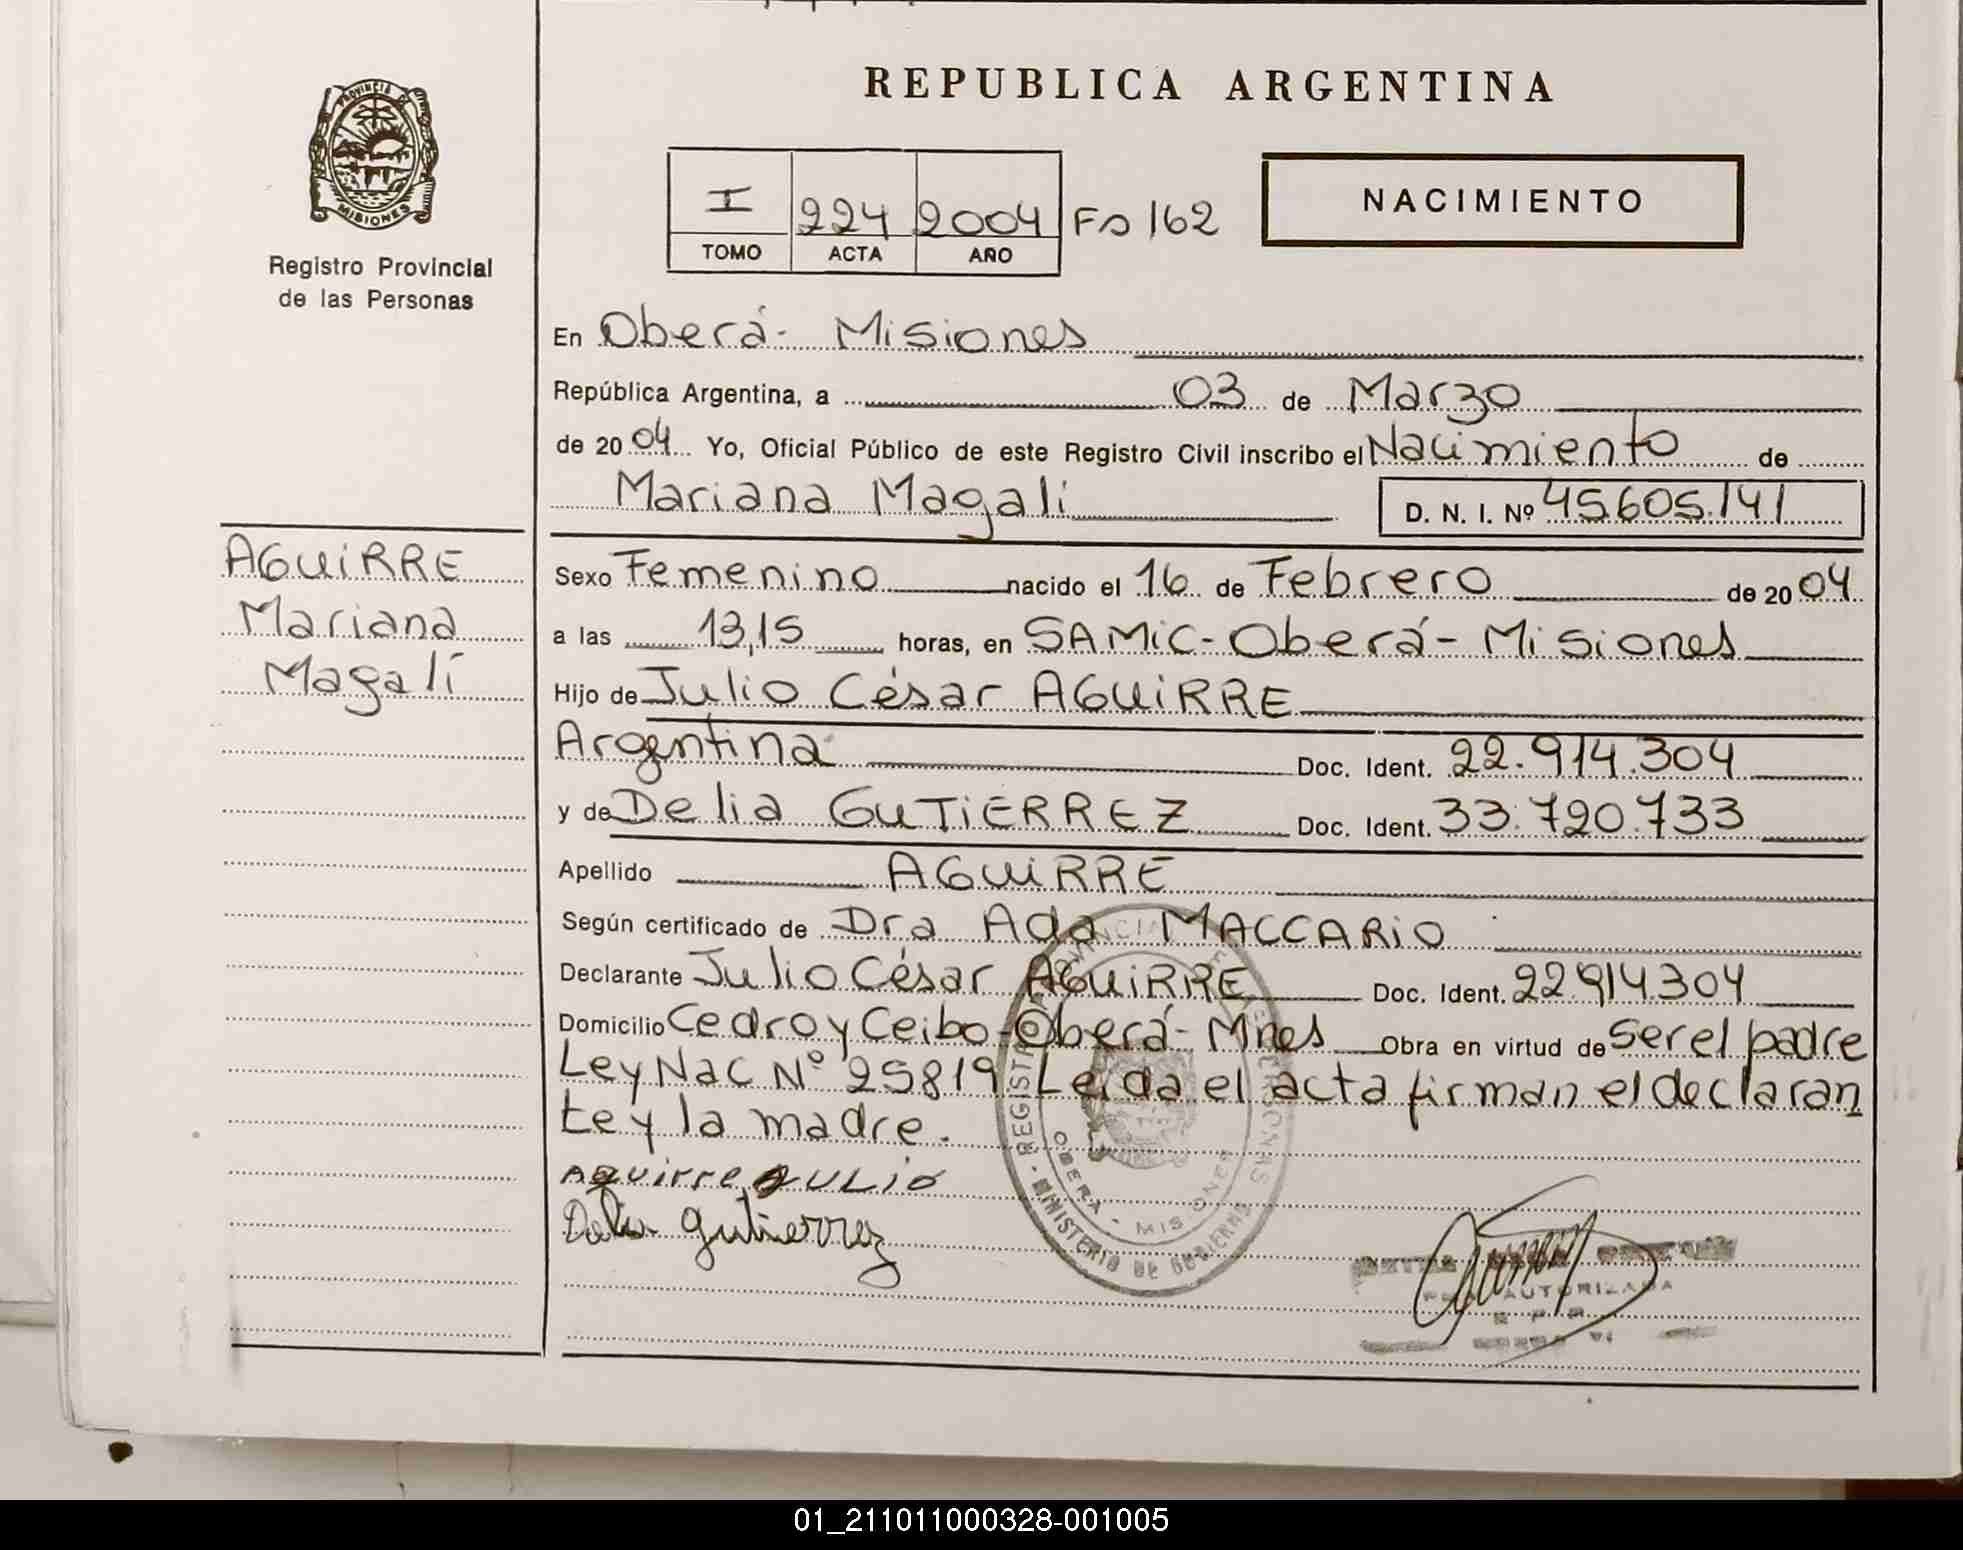 REPUBLICA ARGENTINA
PROVINCIA DE
MISIONES
Registro Provincial
de las Personas
I 224 2004 Fo 162
TOMO ACTA AÑO
NACIMIENTO
En Oberá - Misiones
República Argentina, a 03 de Marzo
de 2004 Yo, Oficial Público de este Registro Civil inscribo el Nacimiento de
Mariana Magali D. N. I. Nº 45.605.141
AGUiRRE
Mariana
Magalí
Sexo Femenino nacido el 16 de Febrero de 2004
a las 13,15 horas, en SAMiC - Oberá - Misiones
Hijo de Julio César AGUiRRE
Argentina Doc. Ident. 22.914.304
y de Delia GUTiERREZ Doc. Ident. 33.720.733
Apellido AGUiRRE
Según certificado de Dra Ada MACCARiO
Declarante Julio César AGUiRRE Doc. Ident. 22.914304
Domicilio Cedro y Ceibo - Oberá - Mnes Obra en virtud de ser el padre
Ley Nac Nº 25819 Leída el acta firman el declaran
te y la madre.
Aguirre JULio
Delia Gutierrez
REGISTR PROVINCIA DE PERSONAS
OBERA - MISIONES
MINISTERIO DE GOBIERNO
AUTORIZADA
01_211011000328-001005